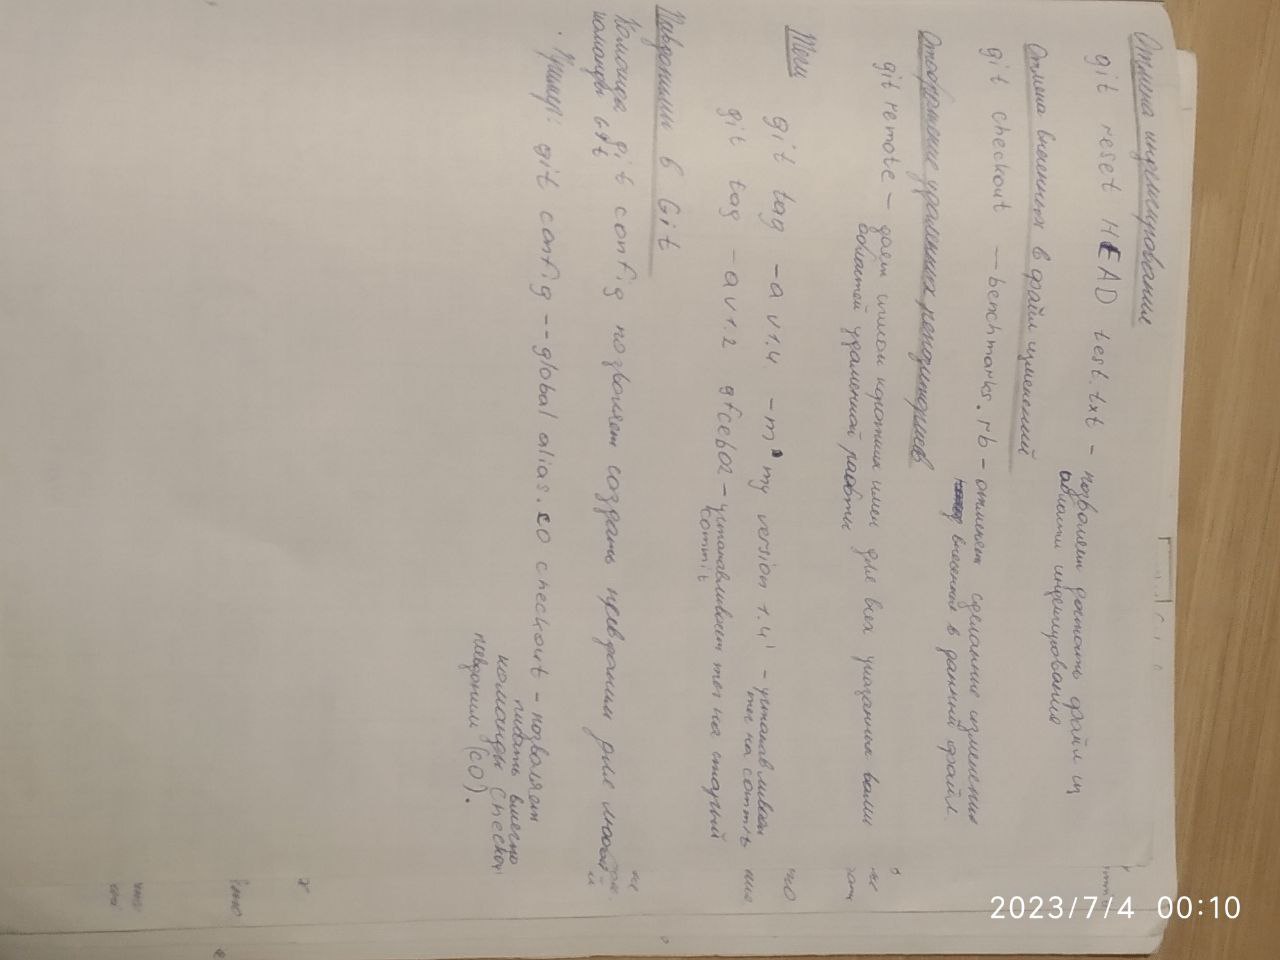 Отмена индексирования
git reset HEAD test.txt - позволяет достать файл из
области индексирования
Отмена внесенных в файл изменений
git checkout -- benchmarks.rb - отменяет сделанные изменения
внесенные в данный файл.
Отображение удаленных репозиториев
git remote - дает список коротких имен для всех указанных вами
областей удаленной работы
Теги
git tag -a v1.4 -m 'my version 1.4' - устанавливает
тег на commit
git tag -a v1.2 9fceb02 - устанавливает тег на старый
commit
Псевдонимы в Git
Команда git config позволяет создать псевдоним для любой
команды
Пример: git config --global alias.co checkout - позволяет
писать вместо
команды checkout
псевдоним (co).
2023/7/4 00:10